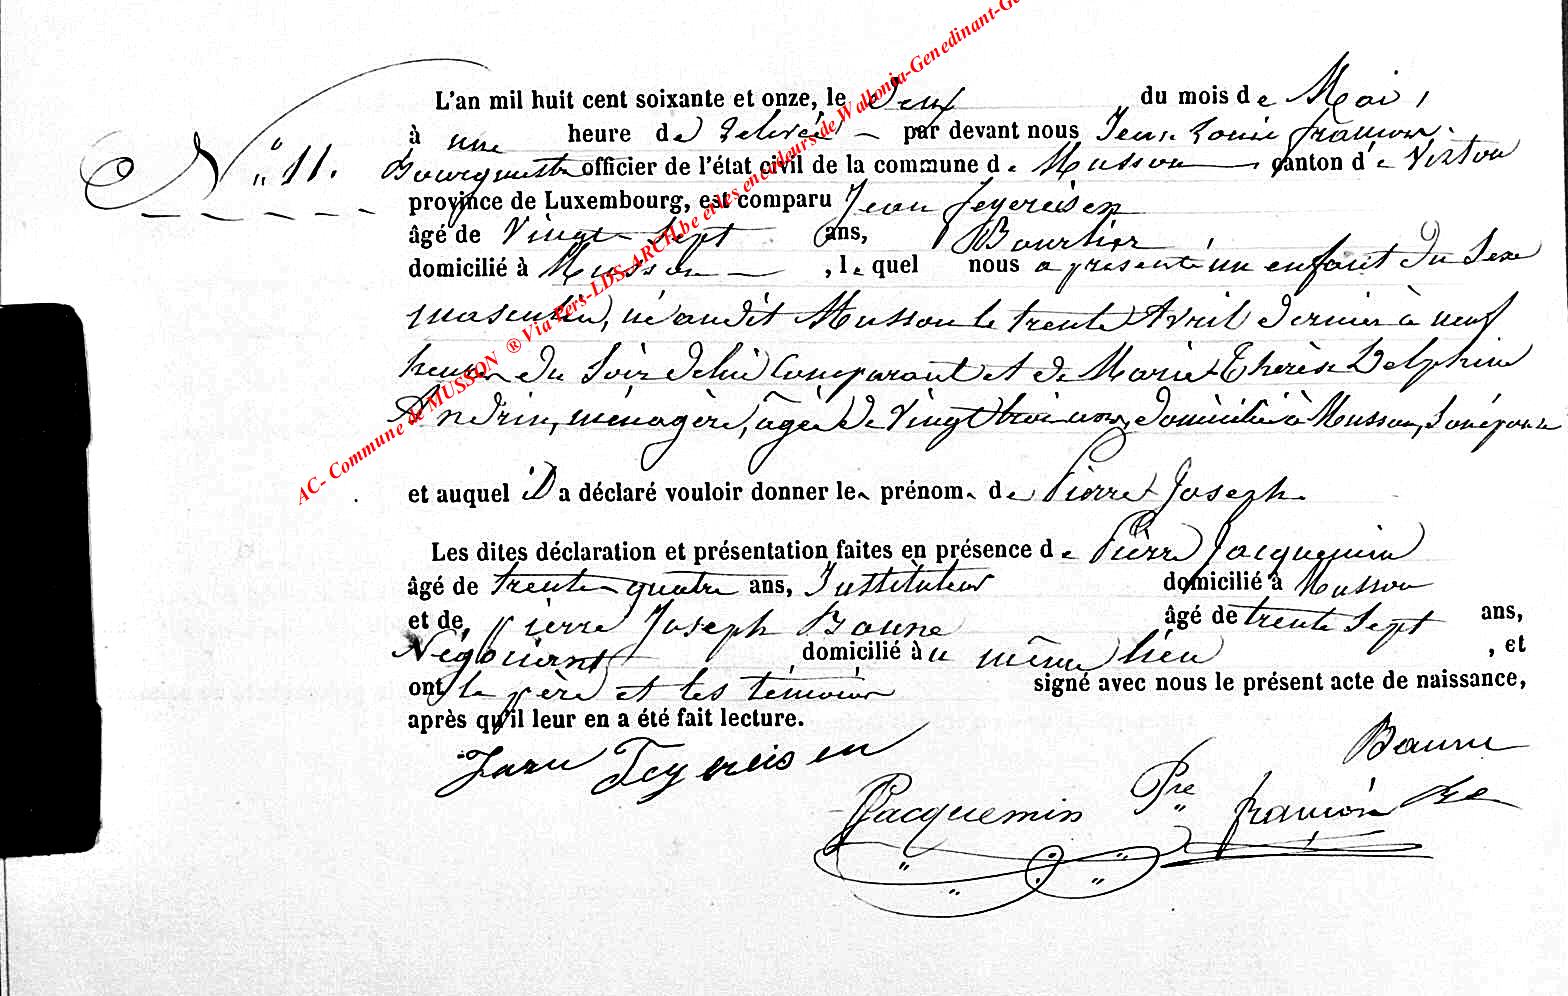 N° 11.
L'an mil huit cent soixante et onze, le Deux du mois de Mai,
à une heure de relevée par devant nous Jean Louis François
Bourguette officier de l'état civil de la commune de Musson canton de Virton
province de Luxembourg, est comparu Jean Feyereisen
âgé de Vingt Sept ans, Bourlier
domicilié à Musson, lequel nous a présenté un enfant du Sexe
masculin, né audit Musson le trente Avril dernier à neuf
heures du Soir de lui Comparant et de Marie Thérèse Delphine
Andrin, ménagère, âgée de Vingt trois ans, domiciliée à Musson, Son épouse
et auquel il a déclaré vouloir donner les prénoms de Pierre Joseph.
Les dites déclaration et présentation faites en présence de Pierre Jacquemin
âgé de trente quatre ans, Instituteur domicilié à Musson
et de Pierre Joseph Bonne âgé de trente Sept ans,
Négociant domicilié au même lieu, et
ont le père et les témoins signé avec nous le présent acte de naissance,
après qu'il leur en a été fait lecture.
Jean Feyereisen
Jacquemin Pre
AC- Commune de MUSSON ® Via Pers-LDS-ARCH.be et les encodeurs de Wallonia-Genedinant-Ge